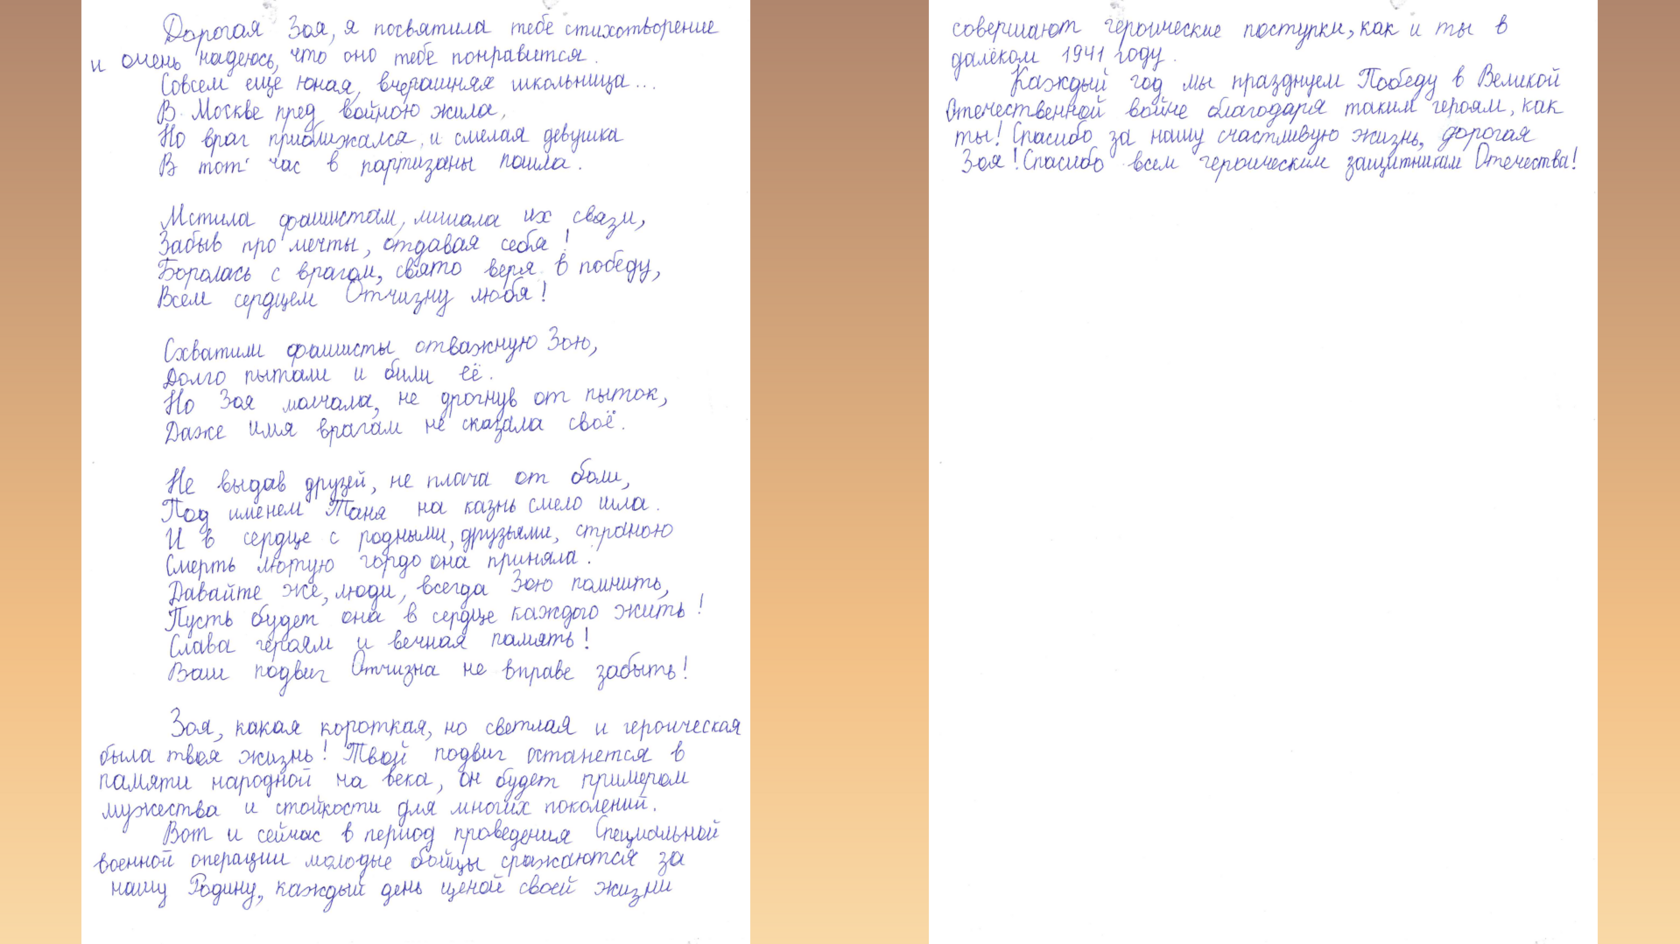 Дорогая Зоя, я посвятила тебе стихотворение
и очень надеюсь, что оно тебе понравится.
Совсем ещё юная, вчерашняя школьница...
В Москве пред войною жила,
Но враг приближался, и смелая девушка
В тот час в партизаны пошла.
Мстила фашистам, лишала их связи,
Забыв про мечты, отдавая себя!
Боролась с врагом, свято веря в победу,
Всем сердцем Отчизну любя!
Схватили фашисты отважную Зою,
Долго пытали и били её.
Но Зоя молчала, не дрогнув от пыток,
Даже имя врагам не сказала своё.
Не выдав друзей, не плача от боли,
Под именем Таня на казнь смело шла.
И в сердце с родными, друзьями, страною
Смерть лютую гордо она приняла.
Давайте же, люди, всегда Зою помнить,
Пусть будет она в сердце каждого жить!
Слава героям и вечная память!
Ваш подвиг Отчизна не вправе забыть!
Зоя, какая короткая, но светлая и героическая
была твоя жизнь! Твой подвиг останется в
памяти народной на века, он будет примером
мужества и стойкости для многих поколений.
Вот и сейчас в период проведения Специальной
военной операции молодые бойцы сражаются за
нашу Родину, каждый день ценой своей жизни
совершают героические поступки, как и ты в
далёком 1941 году.
Каждый год мы празднуем Победу в Великой
Отечественной войне благодаря таким героям, как
ты! Спасибо за нашу счастливую жизнь, дорогая
Зоя! Спасибо всем героическим защитникам Отечества!